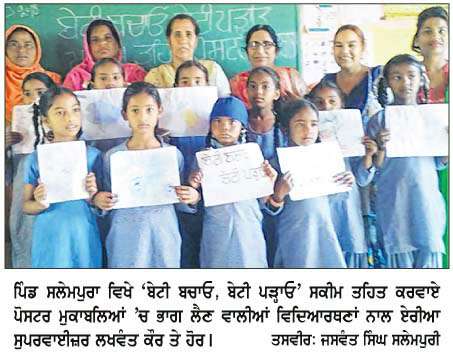 ਬੇਟੀ ਬਚਾਓ ਬੇਟੀ ਪੜ੍ਹਾਓ
ਬੇਟੀ ਪੜ੍ਹਾਓ
ਪਿੰਡ ਸਲੇਮਪੁਰਾ ਵਿਖੇ ‘ਬੇਟੀ ਬਚਾਓ, ਬੇਟੀ ਪੜ੍ਹਾਓ’ ਸਕੀਮ ਤਹਿਤ ਕਰਵਾਏ
ਪੋਸਟਰ ਮੁਕਾਬਲਿਆਂ ’ਚ ਭਾਗ ਲੈਣ ਵਾਲੀਆਂ ਵਿਦਿਆਰਥਣਾਂ ਨਾਲ ਏਰੀਆ
ਸੁਪਰਵਾਈਜ਼ਰ ਲਖਵੰਤ ਕੌਰ ਤੇ ਹੋਰ। ਤਸਵੀਰ: ਜਸਵੰਤ ਸਿੰਘ ਸਲੇਮਪੁਰੀ